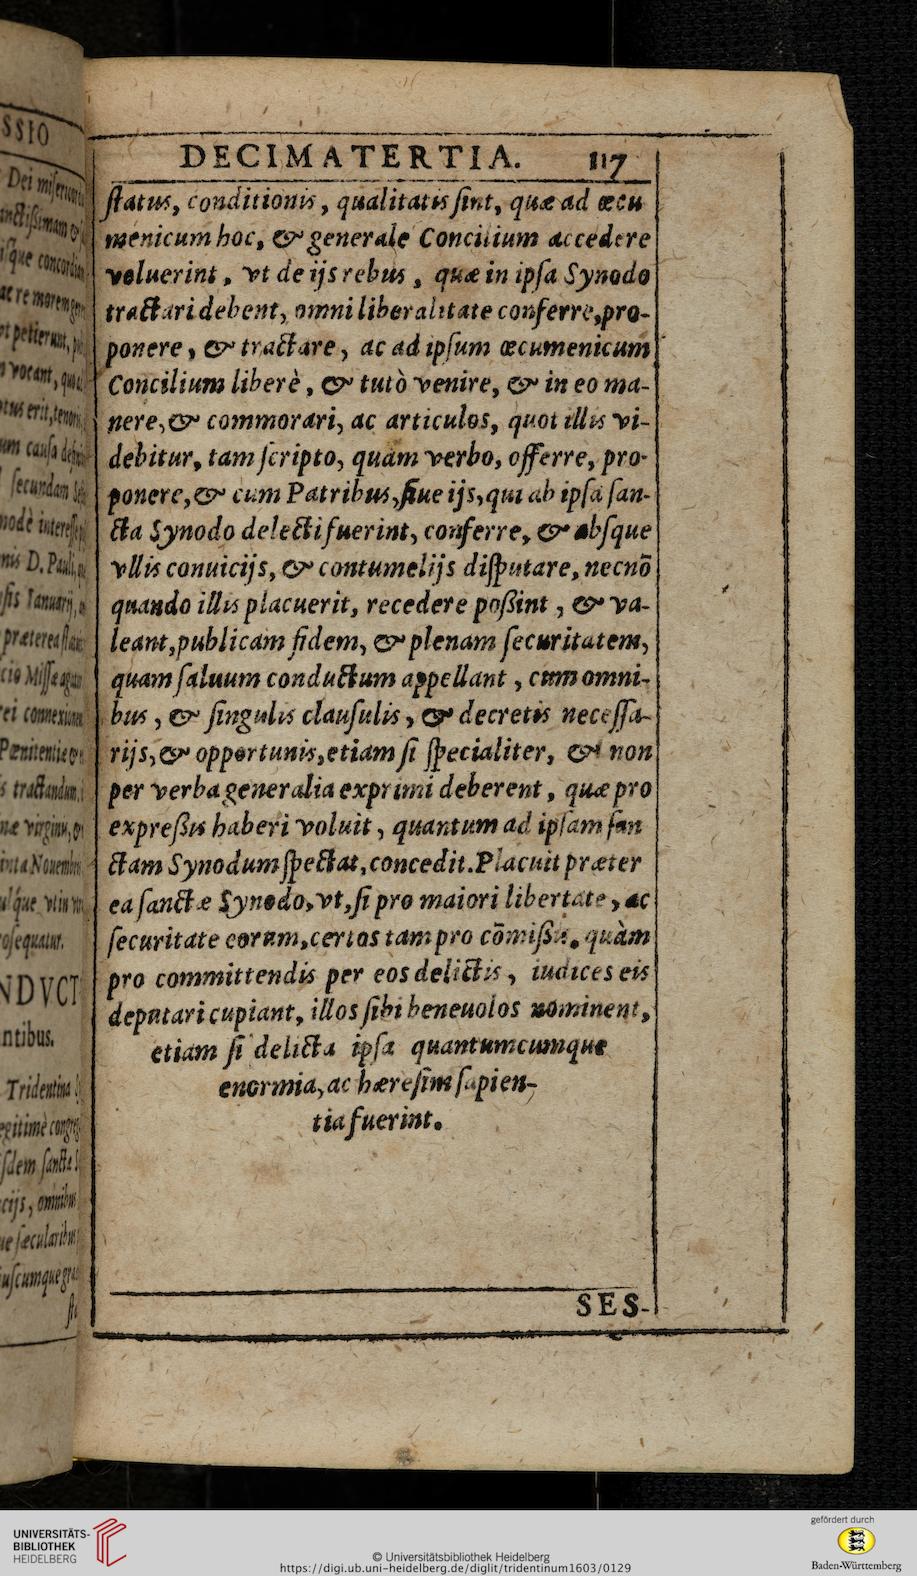 DECIMATERTIA. 117
ſtatus, conditionis, qualitatis ſint, quæ ad œcu
menicum hoc, & generale Concilium accedere
voluerint, vt de ijs rebus, quæ in ipſa Synodo
tractari debent, omni liberalitate conferre, pro-
ponere, & tractare, ac ad ipſum œcumenicum
Concilium liberè, & tutò venire, & in eo ma-
nere, & commorari, ac articulos, quot illis vi-
debitur, tam ſcripto, quàm verbo, offerre, pro-
ponere, & cum Patribus, ſiue ijs, qui ab ipſa ſan-
cta Synodo delecti fuerint, conferre, & abſque
vllis conuicijs, & contumelijs diſputare, necnō
quando illis placuerit, recedere poßint, & va-
leant, publicam fidem, & plenam ſecuritatem,
quam ſaluum conductum appellant, cum omni-
bus, & ſingulis clauſulis, & decretis neceſſa-
rijs, & opportunis, etiam ſi ſpecialiter, & non
per verba generalia exprimi deberent, quæ pro
expreßis haberi voluit, quantum ad ipſam ſan
ctam Synodum ſpectat, concedit. Placuit præter
ea ſanctæ Synodo, vt, ſi pro maiori libertate, ac
ſecuritate eorum, certos tam pro cōmißis, quàm
pro committendis per eos delictis, iudices eis
deputari cupiant, illos ſibi beneuolos nominent,
etiam ſi delicta ipſa quantumcumque
enormia, ac hæreſim ſapien-
tia fuerint.
SES-
SSIO
nis D. Pauli,
ſis Ianuarij,
ei connexum
ntibus.
Tridentina
UNIVERSITÄTS-
BIBLIOTHEK
HEIDELBERG
© Universitätsbibliothek Heidelberg
https://digi.ub.uni-heidelberg.de/diglit/tridentinum1603/0129
gefördert durch
Baden-Württemberg